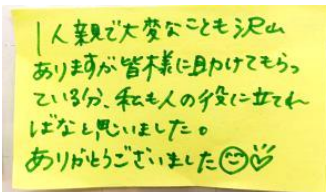 1人親で大変なことも沢山
ありますが皆様に助けてもらっ
ている分、私も人の役に立てれ
ばなと思いました。
ありがとうございました